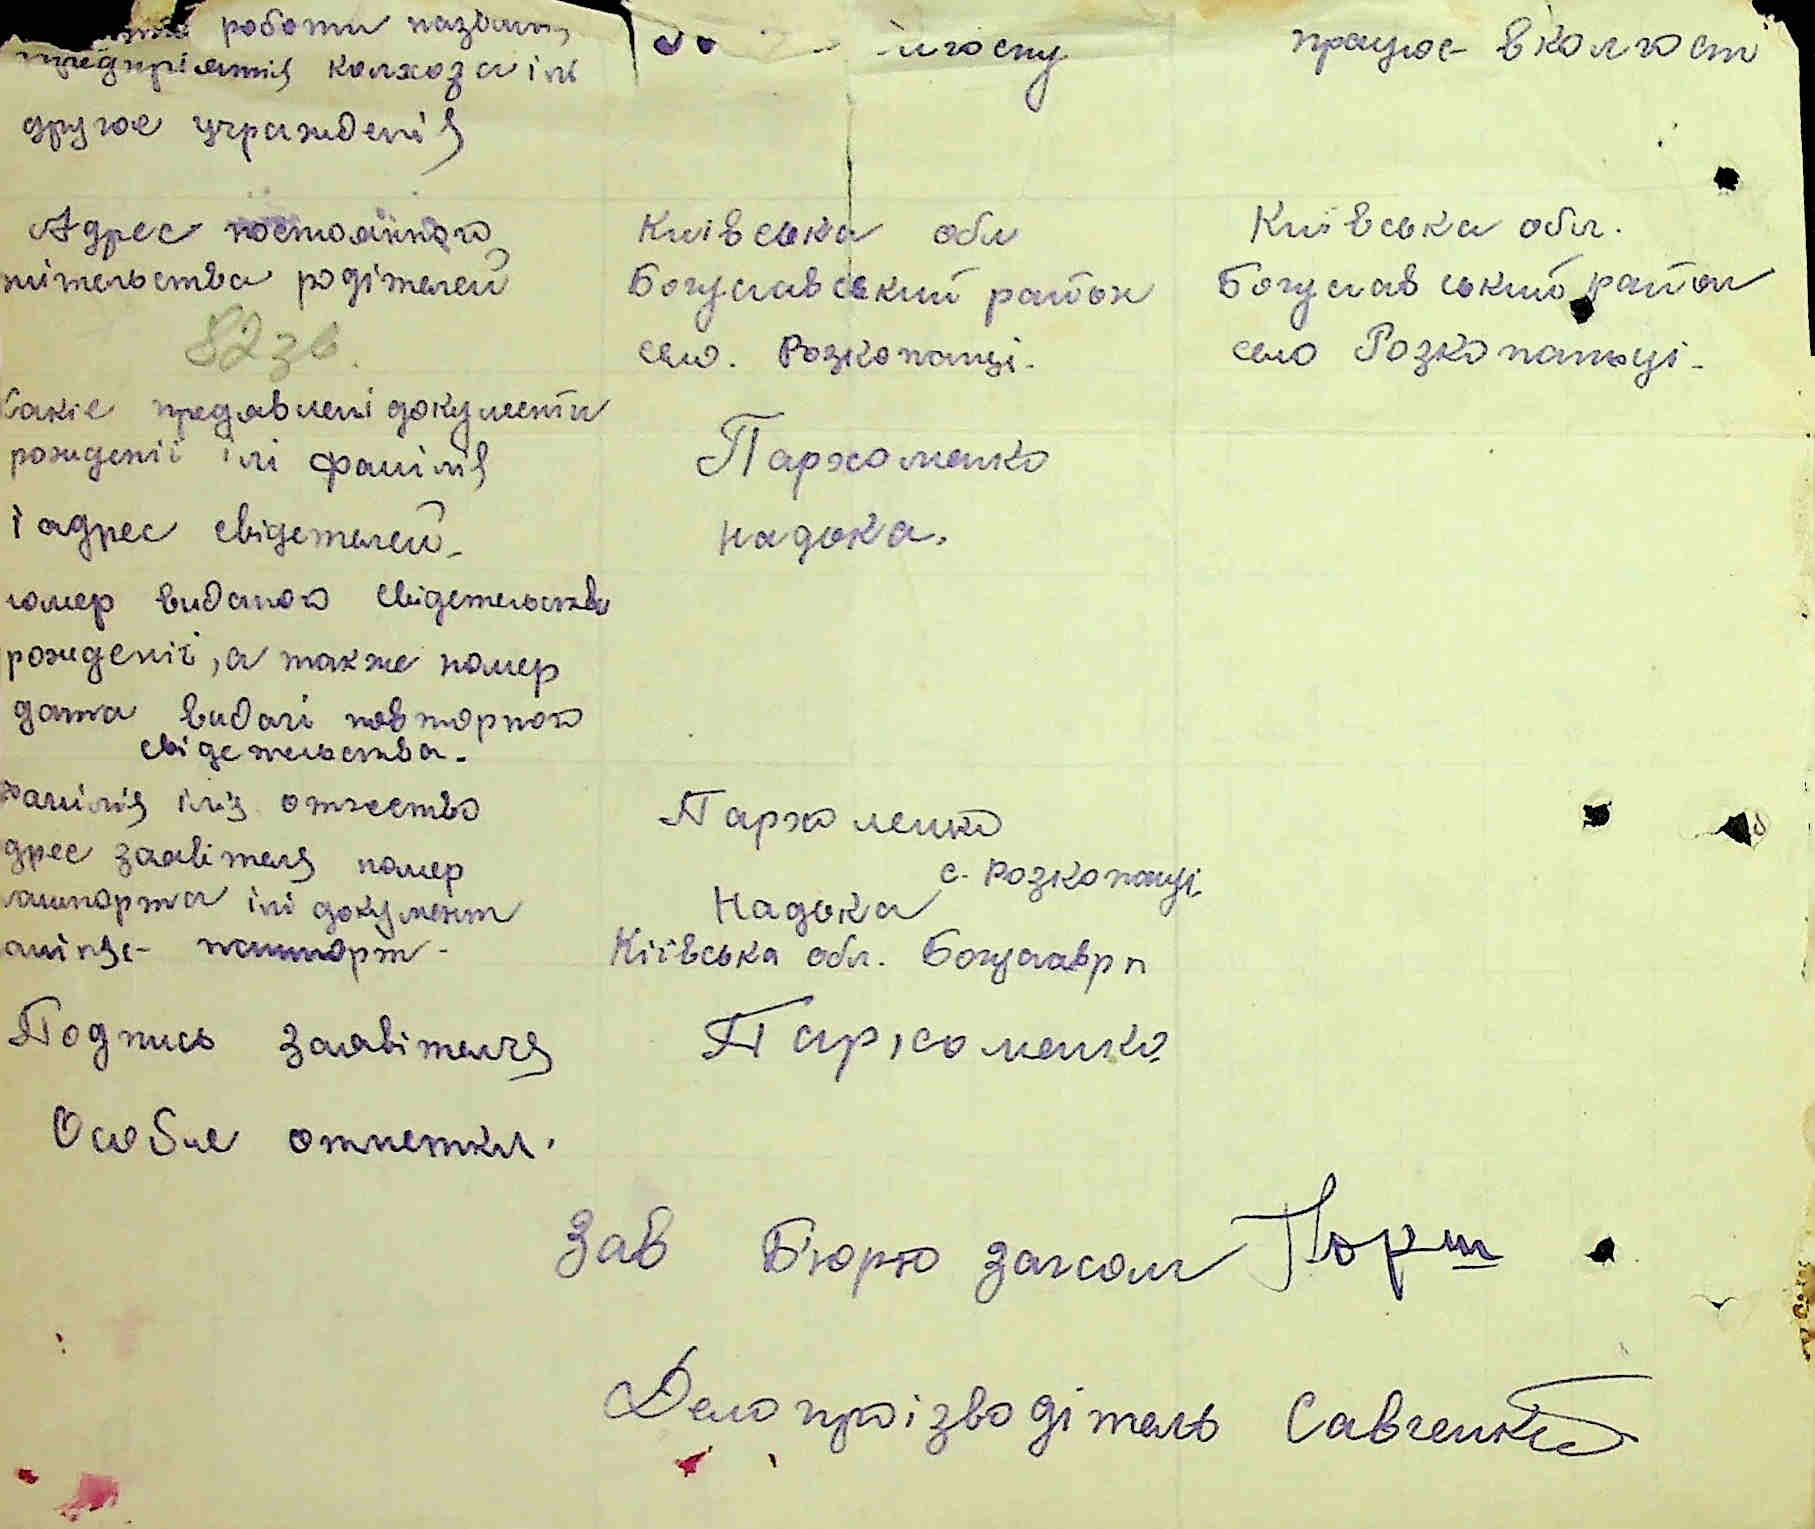 роботи назван
предпріятія колхоза ілі
другое учрежденія
лгоспу
працює в колгост
Адрес постоянного
жітельства родітелей
Київська обл
Богуславський район
село. Розкопанці.
Київська обл.
Богуславський район
село Розкопаньці.
82 зв.
Какіе предявлені документи
рожденії ілі фамілія
і адрес свідетелей
Пархоменко
Надька.
номер виданого свідетельства
рожденії, а также номер
дата видачі повторного
свідетельства.
Фамілія імя отчество
адрес заявітеля номер
пашпорта ілі документ
пашпорт
Пархоменко
с. Розкопанці
Надька
Кіївська обл. Богуслав рн
Подпись заявітеля
Пархоменко
Особие отметки.
Зав Бюрю загсом
Делопроізводітель Савченко